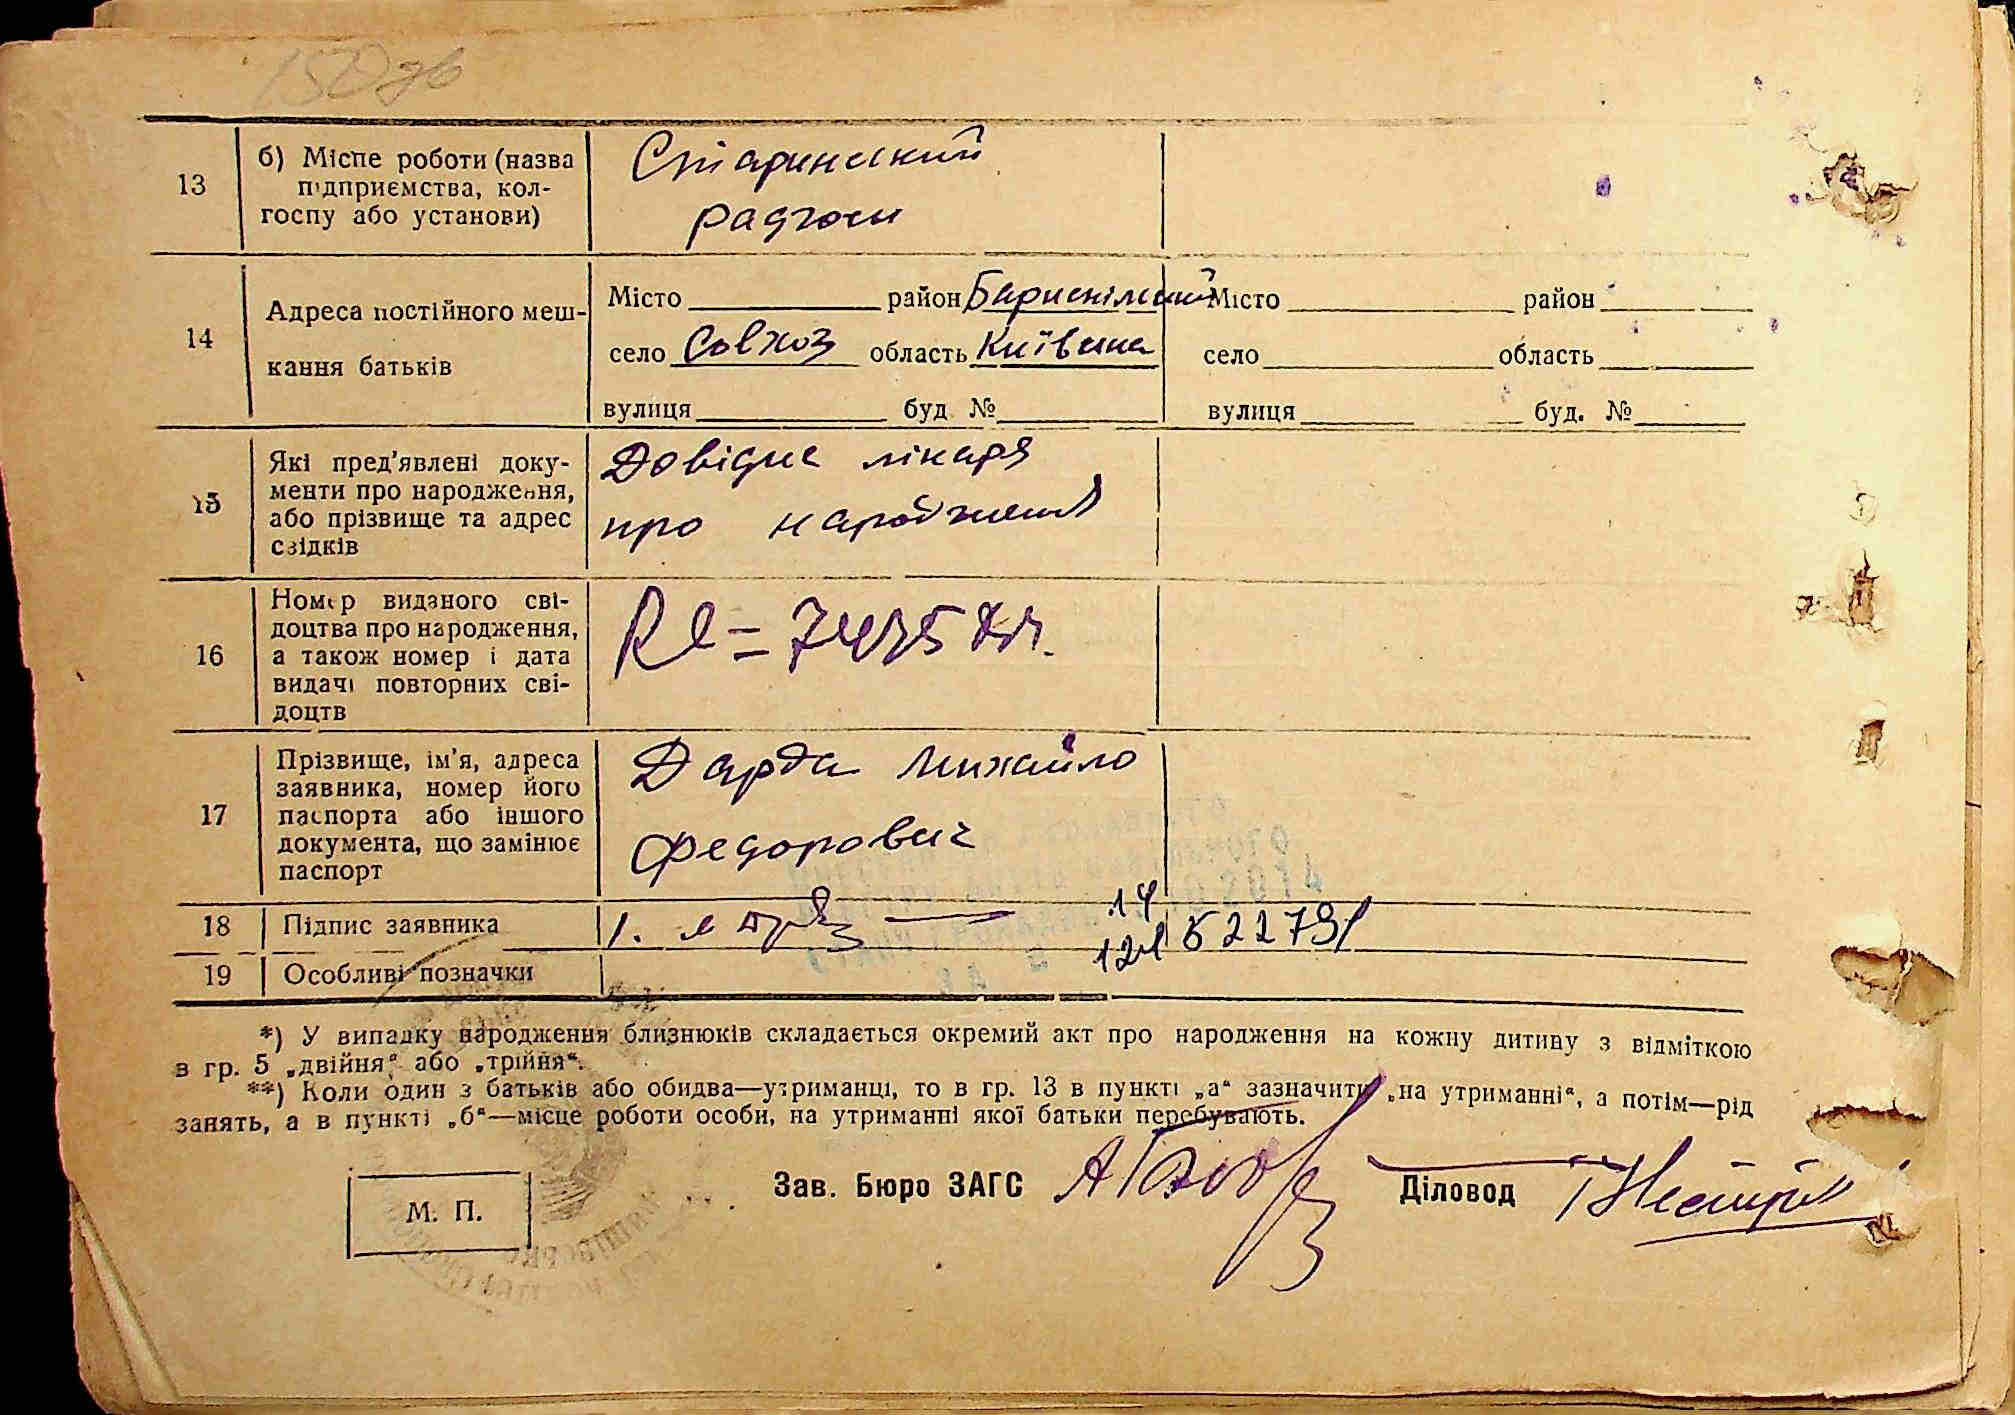 13
б) Місце роботи (назва
підприємства, кол-
госпу або установи)
Старинський
радгосп
14
Адреса постійного меш-
кання батьків
Місто район Бариспільський
село Совхоз область Київська
вулиця буд. №
Місто район
село область
вулиця буд. №
15
Які пред'явлені доку-
менти про народження,
або прізвище та адрес
свідків
Довідка лікаря
про народження
16
Номер виданого сві-
доцтва про народження,
а також номер і дата
видачі повторних сві-
доцтв
17
Прізвище, ім'я, адреса
заявника, номер його
паспорта або іншого
документа, що замінює
паспорт
Дарда Михайло
Федорович
18 Підпис заявника
1.
14
121 522791
19 Особливі позначки
*) У випадку народження близнюків складається окремий акт про народження на кожну дитину з відміткою
в гр. 5 „двійня“ або „трійня“.
**) Коли один з батьків або обидва—утриманці, то в гр. 13 в пункті „а“ зазначити „на утриманні“, а потім—рід
занять, а в пункті „б“—місце роботи особи, на утриманні якої батьки перебувають.
М. П.
Зав. Бюро ЗАГС
Діловод